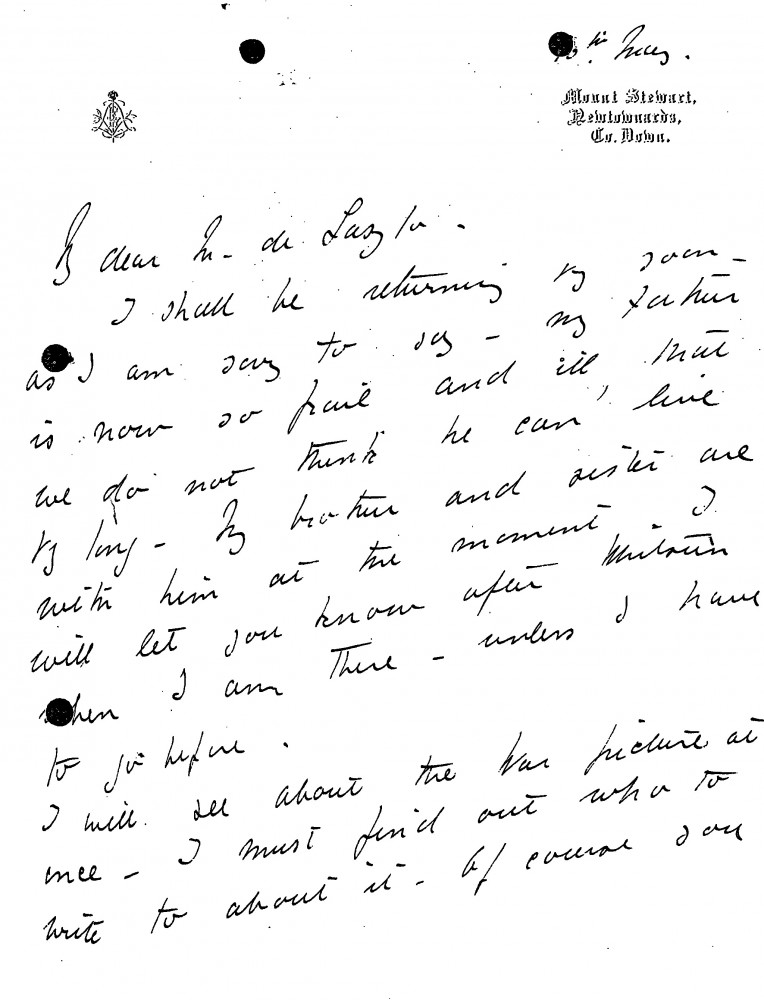 th May.
Mount Stewart,
Newtownards,
Co. Down.
My dear Mr de Laszlo -
I shall be returning vy soon -
as I am sorry to say - my father
is now so frail and ill that
we do not think he can live
vy long - My brother and sister are
with him at the moment - I
will let you know after Whitsun
when I am there - unless I have
to go before .
I will see about the War picture at
once - I must find out who to
write to about it - Of course you